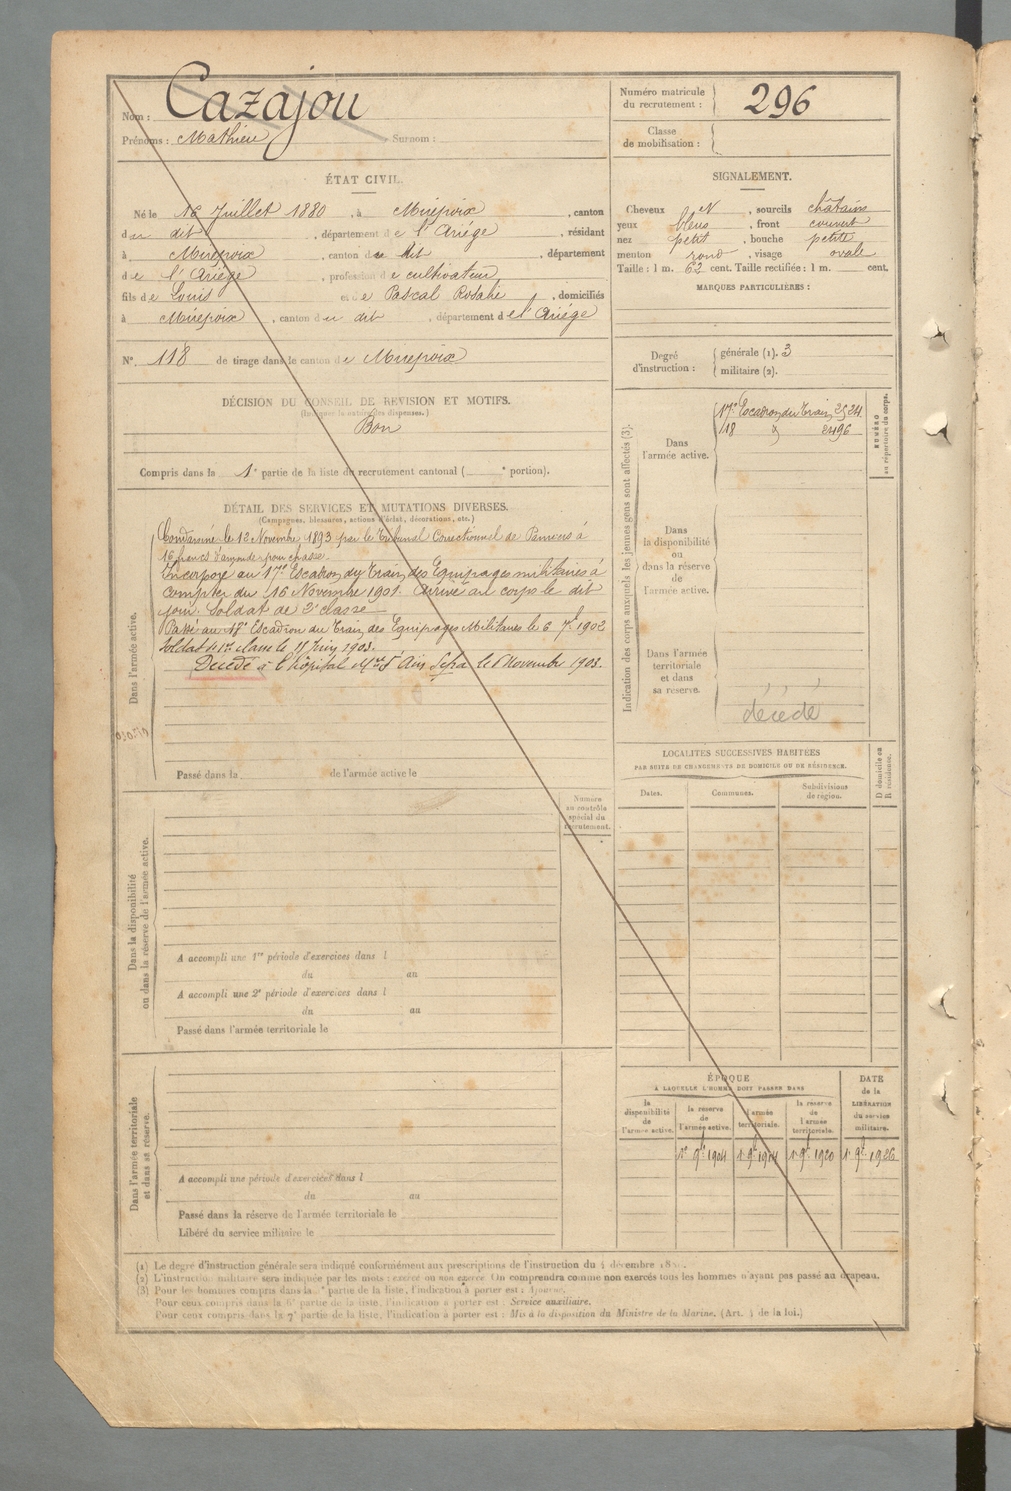 Nom : Cazajou
Prénoms : Mathieu Surnom :
Numéro matricule du recrutement : 296
Classe de mobilisation :
ÉTAT CIVIL.
Né le 16 Juillet 1880, à Mirepoix, canton
du dit, département de l'Ariége, résidant
à Mirepoix, canton du dit, département
de l'Ariége, profession de cultivateur
fils de Louis et de Pascal Rosalie, domiciliés
à Mirepoix, canton du dit, département de l'Ariége
N° 118 de tirage dans le canton de Mirepoix
SIGNALEMENT.
Cheveux N, sourcils châtains
yeux bleus, front couvert
nez petit, bouche petite
menton rond, visage ovale
Taille : 1 m. 62 cent. Taille rectifiée : 1 m. cent.
MARQUES PARTICULIÈRES :
Degré d'instruction : générale (1). 3
militaire (2).
DÉCISION DU CONSEIL DE REVISION ET MOTIFS.
(Indiquer la nature des dispenses.)
Bon
Compris dans la 1e partie de la liste du recrutement cantonal ( e portion).
DÉTAIL DES SERVICES ET MUTATIONS DIVERSES.
(Campagnes, blessures, actions d'éclat, décorations, etc.)
Dans l'armée active.
Condamné le 12 Novembre 1893 par le Tribunal Correctionnel de Pamiers à
16 francs d'amende pour chasse.
Incorporé au 17e Escadron du Train des Equipages militaires à
compter du 16 Novembre 1901. Arrivé au corps le dit
jour. Soldat de 2e classe
Passé au 18e Escadron du Train des Equipages Militaires le 6 7bre 1902
Soldat de 1re classe le 11 Juin 1903.
Décédé à l'hôpital Mre d'Aïn Sefra le 6 Novembre 1903.
Passé dans la de l'armée active le
Indication des corps auxquels les jeunes gens sont affectés (3).
NUMÉRO au répertoire du corps.
Dans l'armée active.
17e Escadron du Train 2524
18 2496
Dans la disponibilité ou dans la réserve de l'armée active.
Dans l'armée territoriale et dans sa réserve.
décédé
LOCALITÉS SUCCESSIVES HABITÉES
PAR SUITE DE CHANGEMENTS DE DOMICILE OU DE RÉSIDENCE.
Dates. Communes. Subdivisions de région. D domicile ou R résidence.
Dans la disponibilité ou dans la réserve de l'armée active.
Numéro au contrôle spécial du recrutement.
A accompli une 1re période d'exercices dans l
du au
A accompli une 2e période d'exercices dans l
du au
Passé dans l'armée territoriale le
Dans l'armée territoriale et dans sa réserve.
A accompli une période d'exercices dans l
du au
Passé dans la réserve de l'armée territoriale le
Libéré du service militaire le
ÉPOQUE
A LAQUELLE L'HOMME DOIT PASSER DANS
la disponibilité de l'armée active.
la réserve de l'armée active.
l'armée territoriale.
la réserve de l'armée territoriale.
DATE de la LIBÉRATION du service militaire.
1er 9bre 1904 1er 9bre 1914 1er 9bre 1920 1er 9bre 1926
(1) Le degré d'instruction générale sera indiqué conformément aux prescriptions de l'instruction du 4 décembre
(2) L'instruction militaire sera indiquée par les mots : exercé ou non exercé. On comprendra comme non exercés tous les hommes n'ayant pas passé au drapeau.
(3) Pour les hommes compris dans la partie de la liste, l'indication à porter est : Ajourné.
Pour ceux compris dans la 6e partie de la liste, l'indication à porter est : Service auxiliaire.
Pour ceux compris dans la 7e partie de la liste, l'indication à porter est : Mis à la disposition du Ministre de la Marine. (Art. 4 de la loi.)